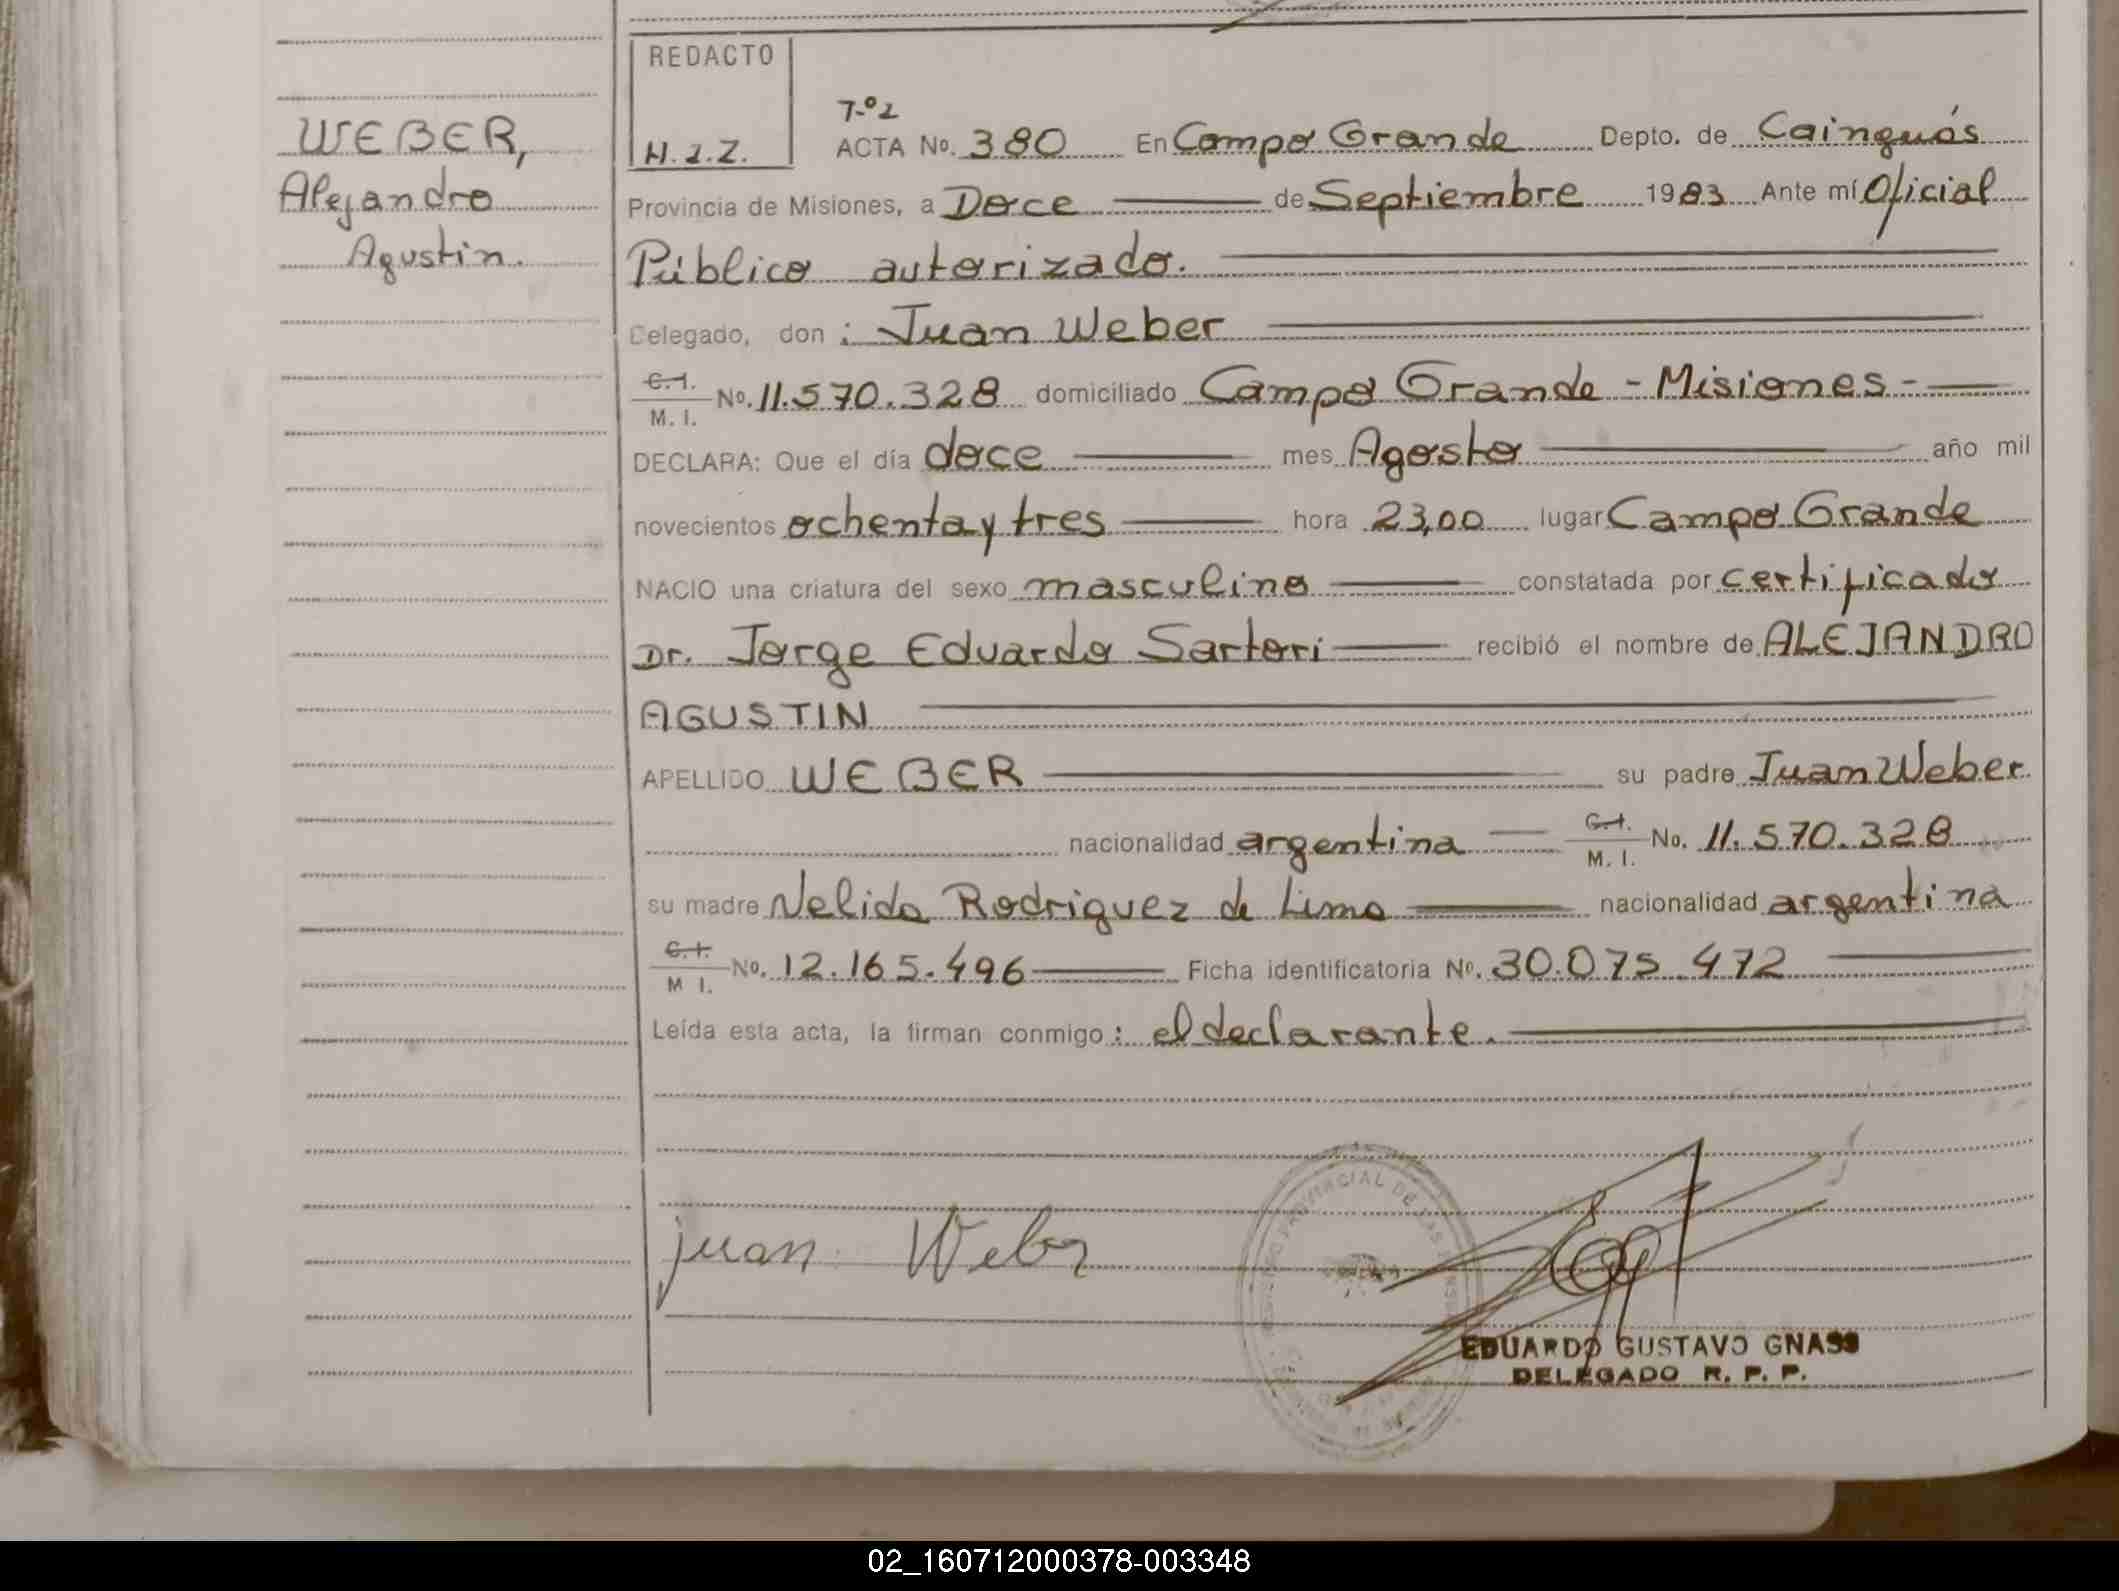 REDACTO
H.I.Z.
WEBER,
Alejandro
Agustin.
T-º2
ACTA No. 380 En Campo Grande Depto. de Cainguás
Provincia de Misiones, a Doce de Septiembre 1983 Ante mí Oficial
Público autorizado.
Delegado, don : Juan Weber
C.I.
M. I. No. 11.570.328 domiciliado Campo Grande - Misiones -
DECLARA: Que el día doce mes Agosto año mil
novecientos ochenta y tres hora 23,00 lugar Campo Grande
NACIO una criatura del sexo masculino constatada por certificado
Dr. Jorge Eduardo Sartori recibió el nombre de ALEJANDRO
AGUSTIN
APELLIDO WEBER su padre Juan Weber
nacionalidad argentina C.I. M. I. No. 11.570.328
su madre Nelida Rodriguez de Lima nacionalidad argentina
C.I.
M I. No. 12.165.496 Ficha identificatoria No. 30.075.472
Leída esta acta, la firman conmigo : el declarante.
juan Weber
PROVINCIAL DE LAS
EDUARDO GUSTAVO GNASS
DELEGADO R. P. P.
02_160712000378-003348